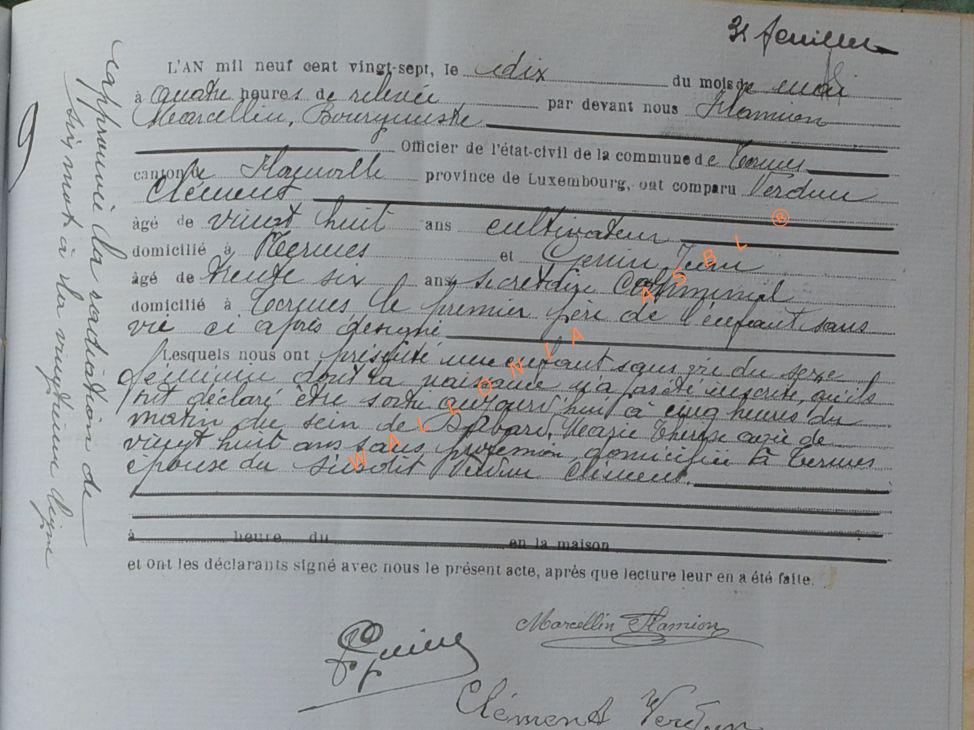 31 feuillet
L'AN mil neuf cent vingt-sept, le dix du mois de mai
à quatre heures de relevée par devant nous Hamion
Marcellin, Bourgmestre
Officier de l'état-civil de la commune de Termes
canton de province de Luxembourg, ont comparu Verdun
Clément
âgé de vingt huit ans cultivateur
domicilié à Termes et
âgé de trente six ans secrétaire Communal
domicilié à Termes le premier père de l'enfant sans
vie ci après désigné
Lesquels nous ont présenté un enfant sans vie du sexe
féminin dont la naissance n'a pas été inscrite, qu'ils
ont déclaré être sorti aujourd'hui à cinq heures du
matin du sein de Marie Thérèse agée de
vingt huit ans sans profession domiciliée à Termes
épouse du susdit Verdun Clément.
à heure du en la maison
et ont les déclarants signé avec nous le présent acte, après que lecture leur en a été faite.
Marcellin Hamion
Clément Verdun
approuvé la radiation de
six mots à la vingtième ligne
9
WALLONIA ASBL ®